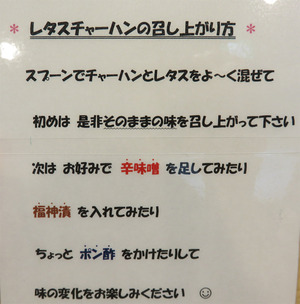 * レタスチャーハンの召し上がり方 *
スプーンでチャーハンとレタスをよ〜く混ぜて
初めは 是非そのままの味を召し上がって下さい
次は お好みで 辛味噌 を足してみたり
福神漬 を入れてみたり
ちょっと ポン酢 をかけたりして
味の変化をお楽しみください ☺